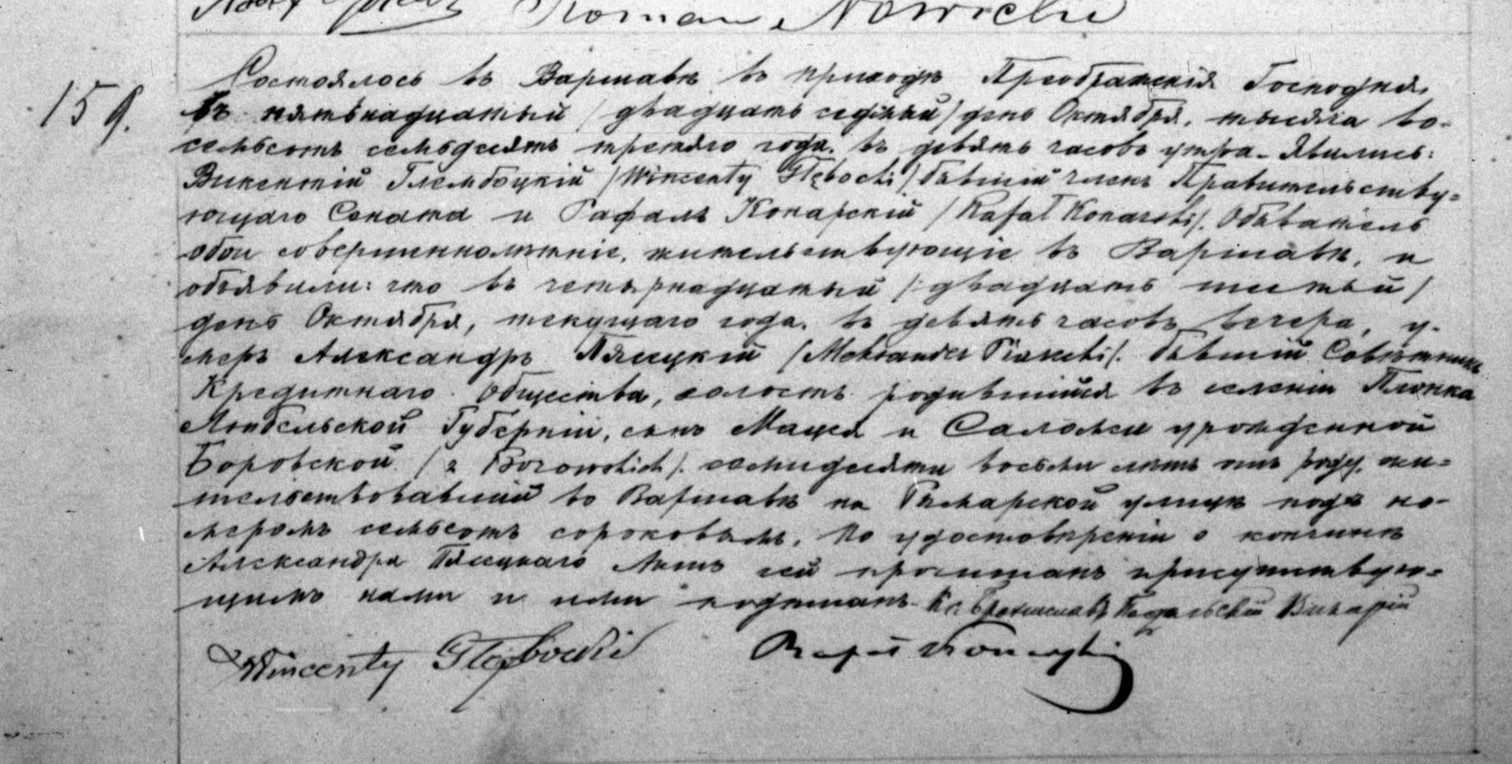 Roman Nowicki
159.
Состоялось въ Варшавѣ въ приходѣ Преображенія Господня,
въ пятьнадцатый / двадцать седьмый / день Октября, тысяча во-
семьсотъ семьдесятъ третяго года, въ девять часовъ утра. Явились:
Викентій Глембоцкій /Wincenty Głębocki/ бывшій членъ Правительству=
ющаго Сената и Рафалъ Конарскій /Rafał Konarski/. Обыватель
обои совершеннолѣтніе, жительствующіе въ Варшавѣ, и
объявили: что въ четырнадцатый /:двадцать шестый/
день Октября, текущаго года, въ девять часовъ вечера, у-
меръ Александръ Пясецкій /Aleksander Piasecki/. бывшій Совѣтникъ
Кредитнаго Общества, холостъ родившійся въ селеніи Плонка
Любельской Губерніи, сынъ Мацея и Саломеи урожденной
Боровской /z Borowskich/. семидесяти восьми лѣтъ отъ роду, жи=
тельствовавшій во Варшавѣ на Рымарской улицѣ подъ но-
меромъ семьсотъ сороковымъ. По удостовѣреніи о кончинѣ
Александра Пясецкаго Актъ сей прочитанъ присутствую=
щимъ нами и ими подписанъ. Кс. Брониславъ Подальскій Викарій
Wincenty Głębocki Rafał Konarski